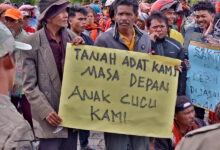 TANAH ADAT KAMI
MASA DEPAN
ANAK CUCU
KAMI